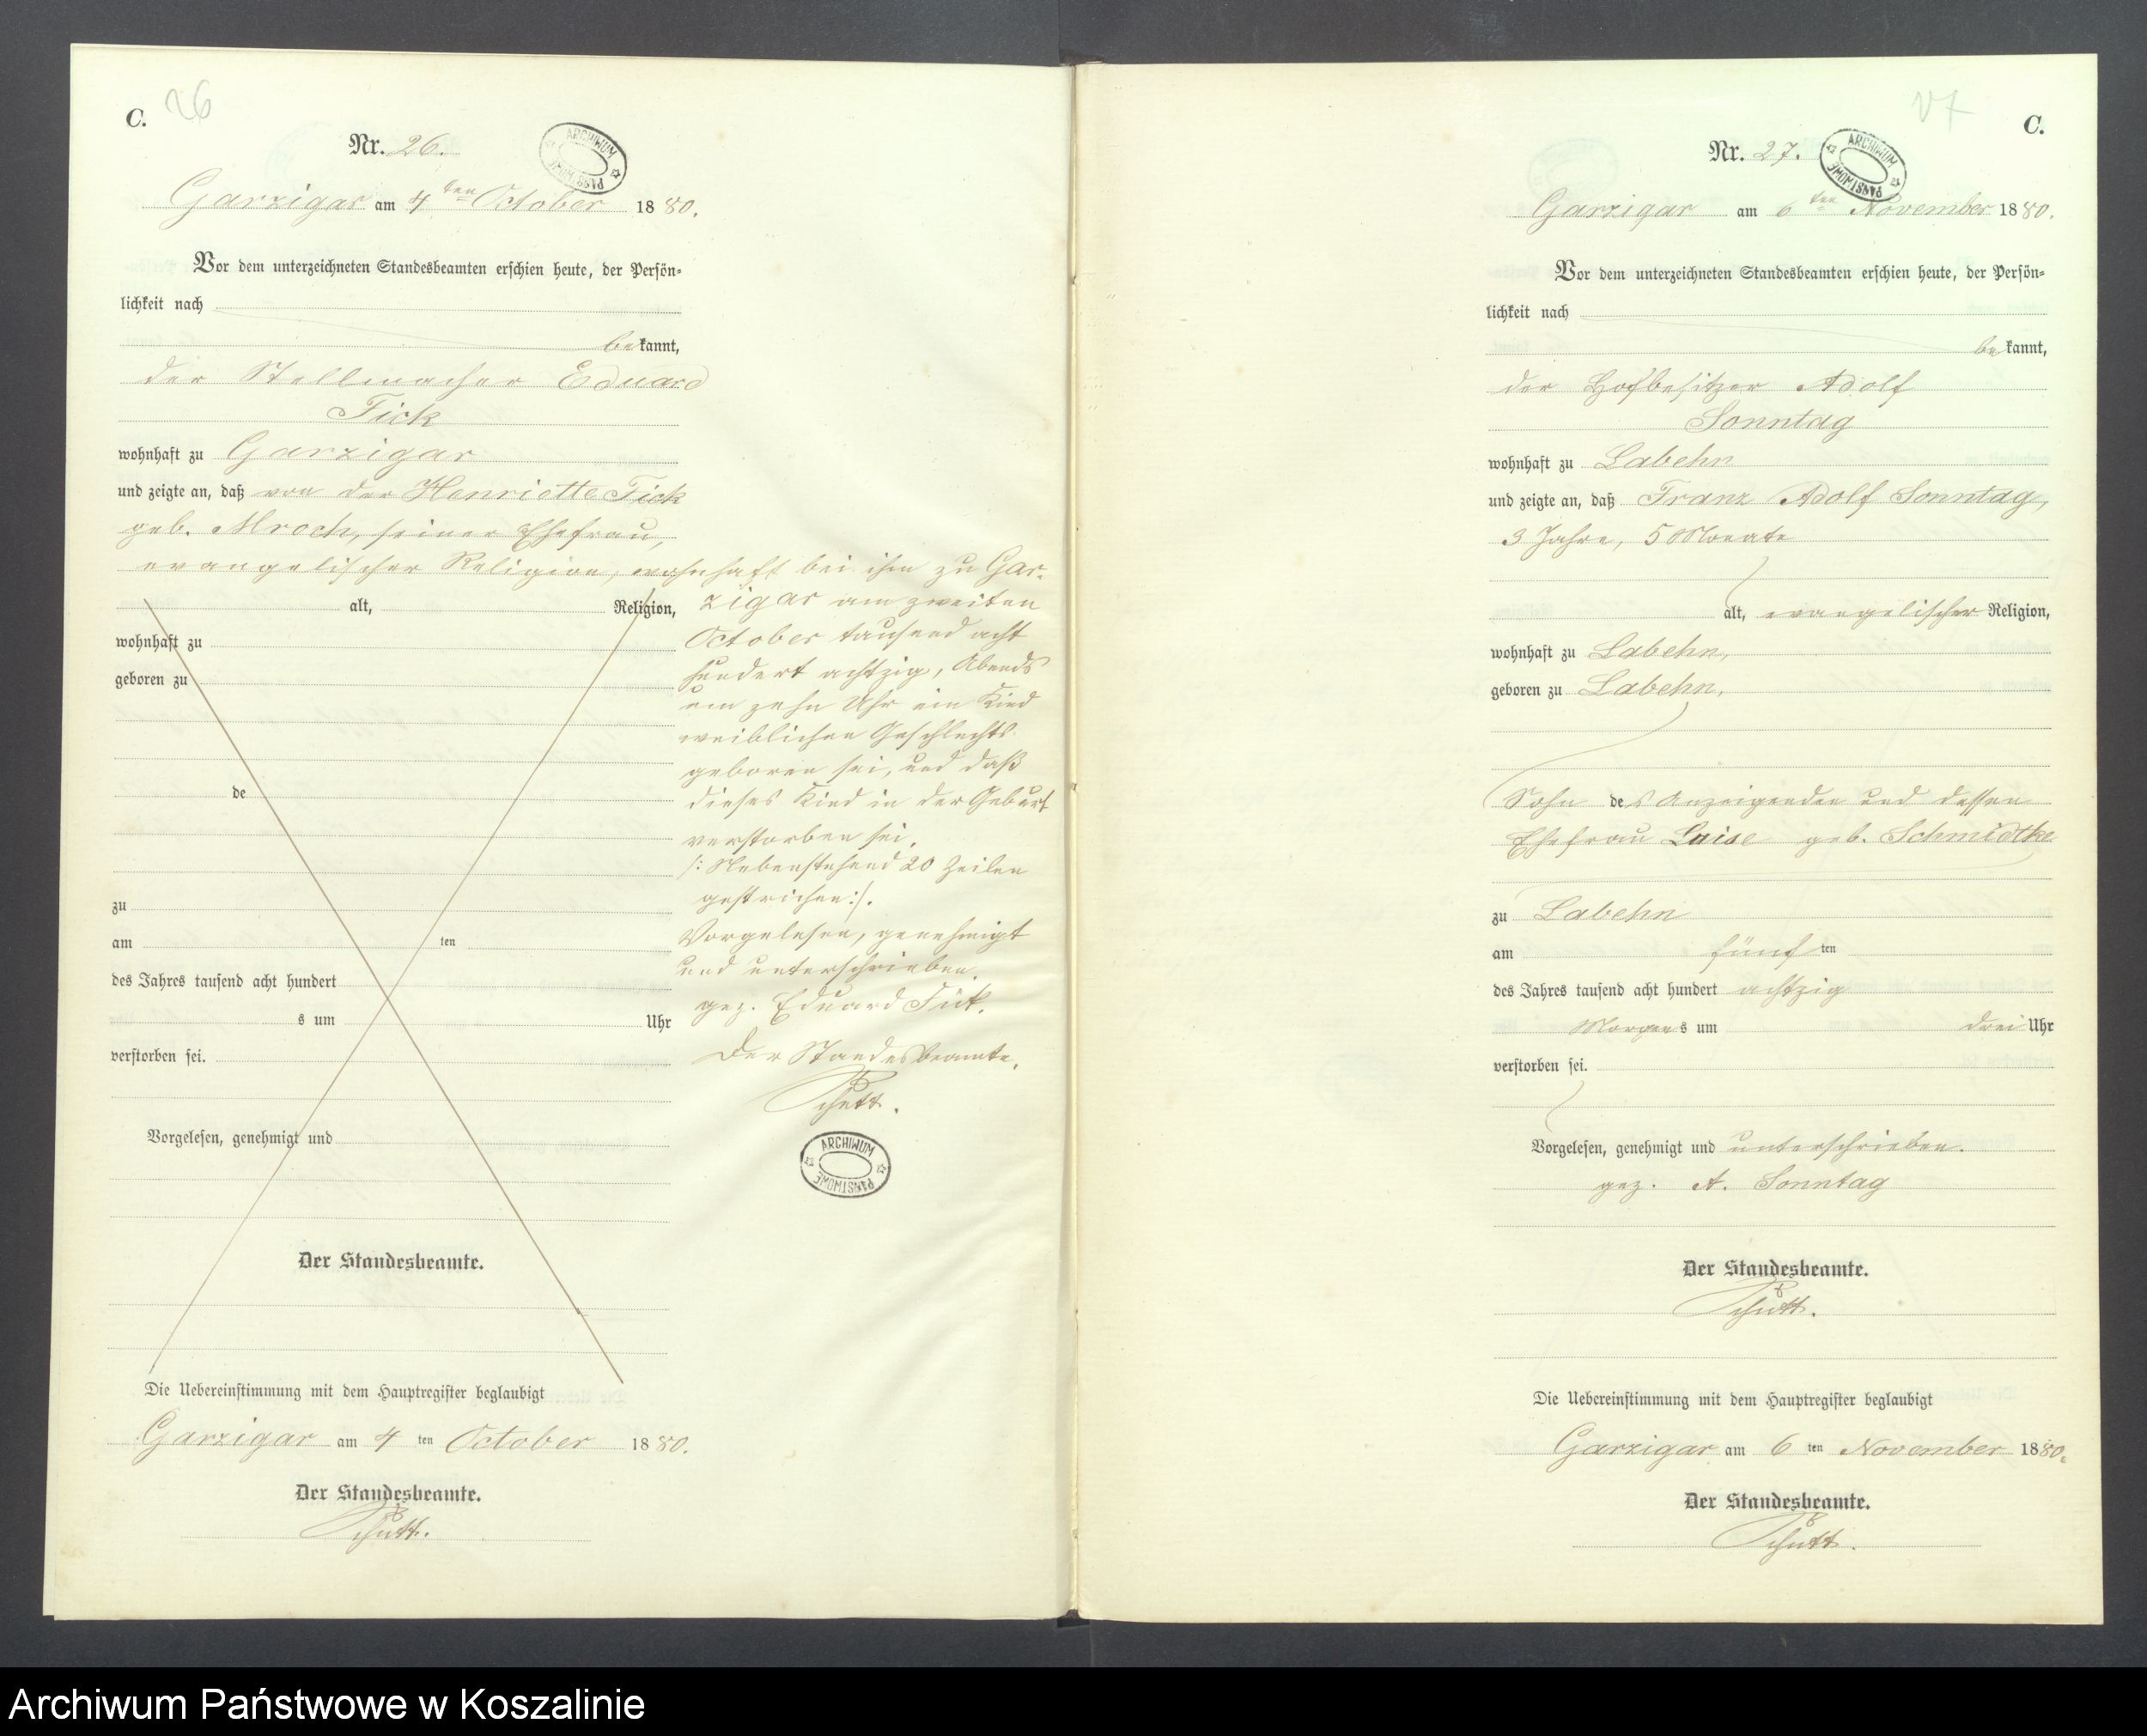 C.
26
Nr. 26.
ARCHIWUM PAŃSTWOWE
Garzigar am 4ten October 1880.
Vor dem unterzeichneten Standesbeamten erschien heute, der Persön-
lichkeit nach
bekannt,
der Stellmacher Eduard
Fick
wohnhaft zu Garzigar
und zeigte an, daß von der Henriette Fick
geb. Mroch, seiner Ehefrau,
evangelischer Religion, wohnhaft bei ihm zu Gar-
alt, Religion,
wohnhaft zu
geboren zu
de
zu
am ten
des Jahres tausend acht hundert
s um Uhr
verstorben sei.
Vorgelesen, genehmigt und
Der Standesbeamte.
zigar am zweiten
October tausend acht
hundert achtzig, Abends
um zehn Uhr ein Kind
weiblichen Geschlechts
geboren sei, und daß
dieses Kind in der Geburt
verstorben sei.
/: Nebenstehend 20 Zeilen
gestrichen :/.
Vorgelesen, genehmigt
und unterschrieben.
gez. Eduard Fick.
Der Standesbeamte.
Schütt.
ARCHIWUM PAŃSTWOWE
Die Uebereinstimmung mit dem Hauptregister beglaubigt
Garzigar am 4 ten October 1880.
Der Standesbeamte.
Schütt.
27
C.
Nr. 27.
ARCHIWUM PAŃSTWOWE
Garzigar am 6ten November 1880.
Vor dem unterzeichneten Standesbeamten erschien heute, der Persön-
lichkeit nach
bekannt,
der Hofbesitzer Adolf
Sonntag
wohnhaft zu Labehn
und zeigte an, daß Franz Adolf Sonntag,
3 Jahre, 5 Monate
alt, evangelischer Religion,
wohnhaft zu Labehn,
geboren zu Labehn,
Sohn des Anzeigenden und dessen
Ehefrau Luise geb. Schmidtke
zu Labehn
am fünften
des Jahres tausend acht hundert achtzig
Morgens um drei Uhr
verstorben sei.
Vorgelesen, genehmigt und unterschrieben.
gez. A. Sonntag
Der Standesbeamte.
Schütt.
Die Uebereinstimmung mit dem Hauptregister beglaubigt
Garzigar am 6 ten November 1880.
Der Standesbeamte.
Schütt.
Archiwum Państwowe w Koszalinie